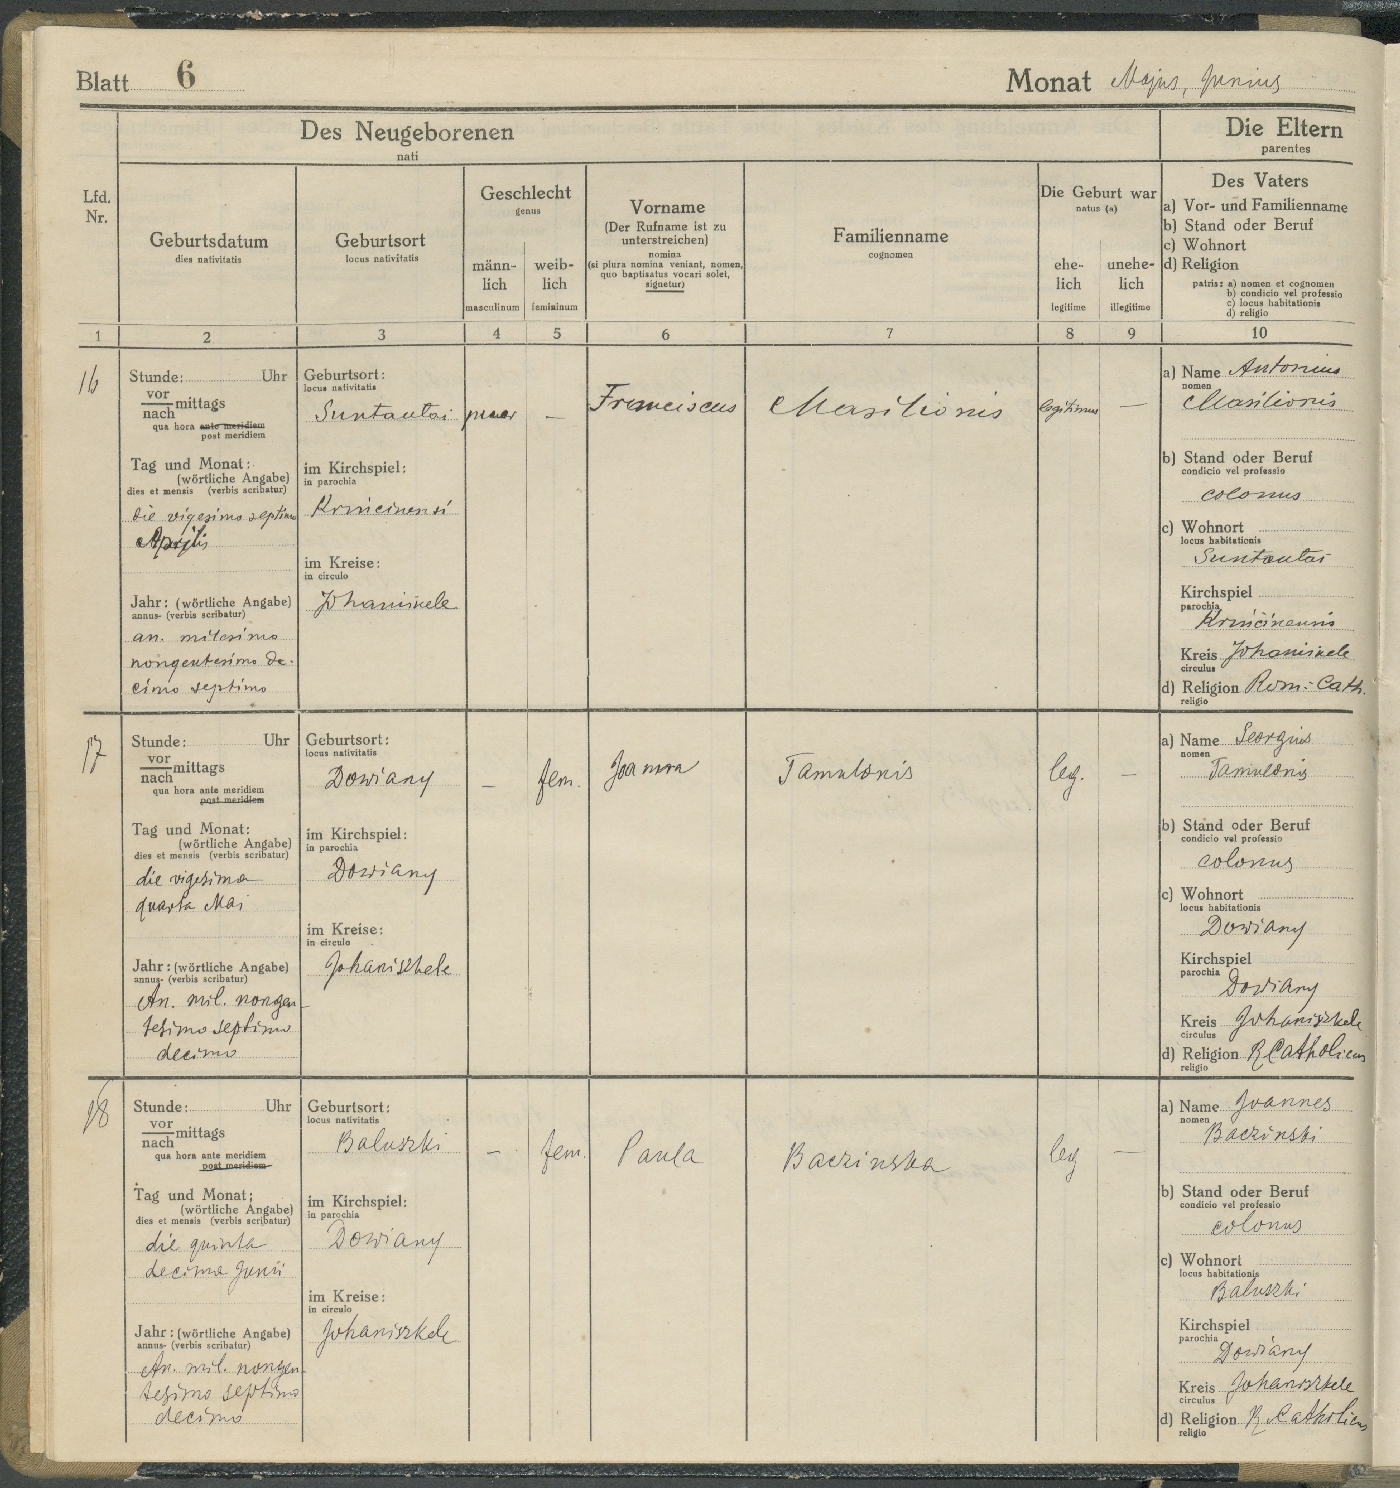 Blatt 6
Monat Majus, Junius
Des Neugeborenen
nati
Die Eltern
parentes
Lfd.
Nr.
Geburtsdatum
dies nativitatis
Geburtsort
locus nativitatis
Geschlecht
genus
männ-
lich
masculinum
weib-
lich
femininum
Vorname
(Der Rufname ist zu
unterstreichen)
nomina
(si plura nomina veniant, nomen,
quo baptisatus vocari solet,
signetur)
Familienname
cognomen
Die Geburt war
natus (a)
ehe-
lich
legitime
unehe-
lich
illegitime
Des Vaters
a) Vor- und Familienname
b) Stand oder Beruf
c) Wohnort
d) Religion
patris: a) nomen et cognomen
b) condicio vel professio
c) locus habitationis
d) religio
1 2 3 4 5 6 7 8 9 10
16
Stunde: Uhr
vor
nach mittags
qua hora ante meridiem
post meridiem
Tag und Monat:
(wörtliche Angabe)
dies et mensis (verbis scribatur)
die vigesimo septimo
Aprilis
Jahr: (wörtliche Angabe)
annus- (verbis scribatur)
an. milesimo
nongentesimo de-
cimo septimo
Geburtsort:
locus nativitatis
Suntautai
im Kirchspiel:
in parochia
Krincinensi
im Kreise:
in circulo
Johaniskele
puer
–
Franciscus
Masilionis
legitimus
–
a) Name Antonius
nomen
Masilionis
b) Stand oder Beruf
condicio vel professio
colonus
c) Wohnort
locus habitationis
Suntautai
Kirchspiel
parochia
Krincinensis
Kreis Johaniskele
circulus
d) Religion Rom. Cath.
religio
17
Stunde: Uhr
vor
nach mittags
qua hora ante meridiem
post meridiem
Tag und Monat:
(wörtliche Angabe)
dies et mensis (verbis scribatur)
die vigesima
quarta Mai
Jahr: (wörtliche Angabe)
annus- (verbis scribatur)
An. mil. nongen-
tesimo septimo
decimo
Geburtsort:
locus nativitatis
Dowiany
im Kirchspiel:
in parochia
Dowiany
im Kreise:
in circulo
Johaniszkele
–
fem.
Joanna
Tamulonis
leg.
–
a) Name Georgius
nomen
Tamulonis
b) Stand oder Beruf
condicio vel professio
colonus
c) Wohnort
locus habitationis
Dowiany
Kirchspiel
parochia
Dowiany
Kreis Johaniszkele
circulus
d) Religion R Catholicus
religio
18
Stunde: Uhr
vor
nach mittags
qua hora ante meridiem
post meridiem
Tag und Monat;
(wörtliche Angabe)
dies et mensis (verbis scribatur)
die quinta
decima Junii
Jahr: (wörtliche Angabe)
annus- (verbis scribatur)
An. mil. nongen-
tesimo septimo
decimo
Geburtsort:
locus nativitatis
Baluszki
im Kirchspiel:
in parochia
Dowiany
im Kreise:
in circulo
Johaniszkele
–
fem.
Paula
Baczinska
leg
–
a) Name Joannes
nomen
Baczinski
b) Stand oder Beruf
condicio vel professio
colonus
c) Wohnort
locus habitationis
Baluszki
Kirchspiel
parochia
Dowiany
Kreis Johaniszkele
circulus
d) Religion R Catholicus
religio